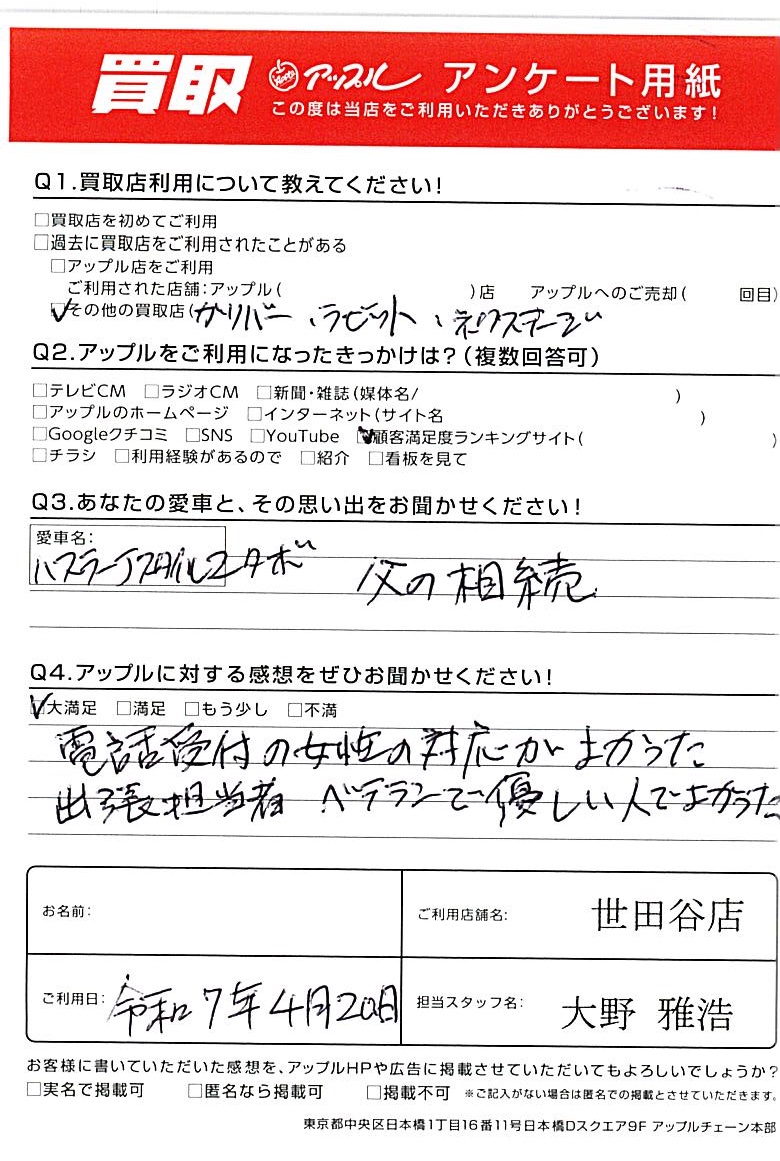 買取 Apple アップル アンケート用紙
この度は当店をご利用いただきありがとうございます!
Q1.買取店利用について教えてください!
□買取店を初めてご利用
□過去に買取店をご利用されたことがある
□アップル店をご利用
ご利用された店舗:アップル( )店 アップルへのご売却( 回目)
☑その他の買取店(ガリバー、ラビット、ネクステージ
Q2.アップルをご利用になったきっかけは?(複数回答可)
□テレビCM □ラジオCM □新聞・雑誌(媒体名/ )
□アップルのホームページ □インターネット(サイト名 )
□Googleクチコミ □SNS □YouTube ☑顧客満足度ランキングサイト( )
□チラシ □利用経験があるので □紹介 □看板を見て
Q3.あなたの愛車と、その思い出をお聞かせください!
愛車名:
ハスラーJスタイルⅡターボ 父の相続
Q4.アップルに対する感想をぜひお聞かせください!
☑大満足 □満足 □もう少し □不満
電話受付の女性の対応がよかった
出張担当者 ベテランで優しい人でよかった
お名前:
ご利用店舗名: 世田谷店
ご利用日: 令和7年4月20日
担当スタッフ名: 大野 雅浩
お客様に書いていただいた感想を、アップルHPや広告に掲載させていただいてもよろしいでしょうか?
□実名で掲載可 □匿名なら掲載可 □掲載不可 ※ご記入がない場合は匿名での掲載とさせていただきます。
東京都中央区日本橋1丁目16番11号日本橋Dスクエア9F アップルチェーン本部